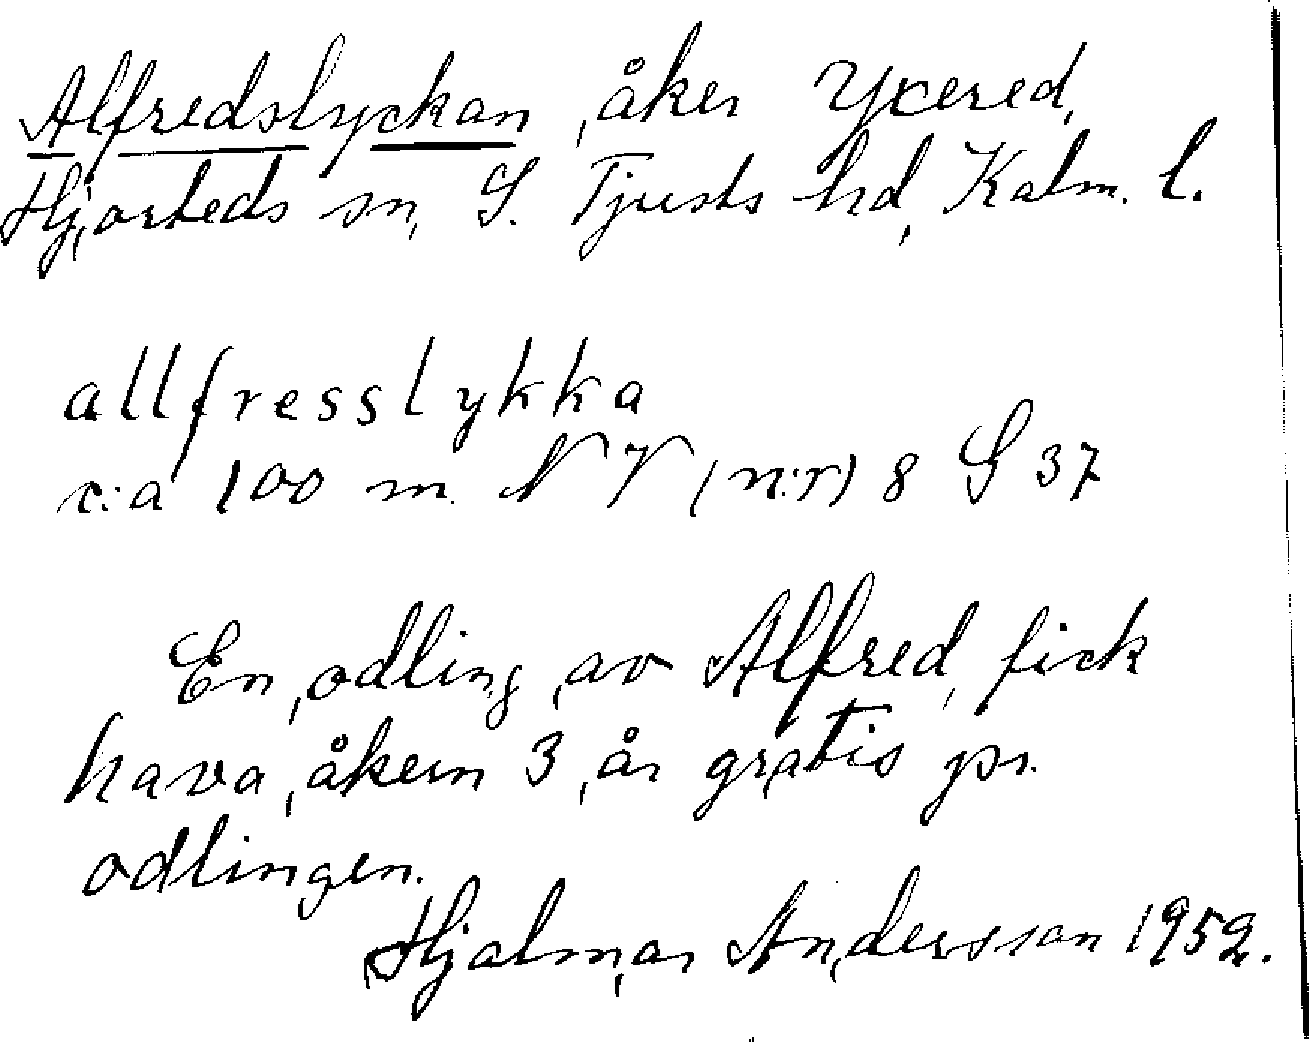 Alfredslyckan, åker Yxered,
Hjorteds sn, S. Tjusts hd, Kalm. l.
allfresslykka
c:a 100 m. N V (n:r) 8 S 37
En odling av Alfred, fick
hava åkern 3 år gratis pr.
odlingen.
Hjalmar Andersson 1952.